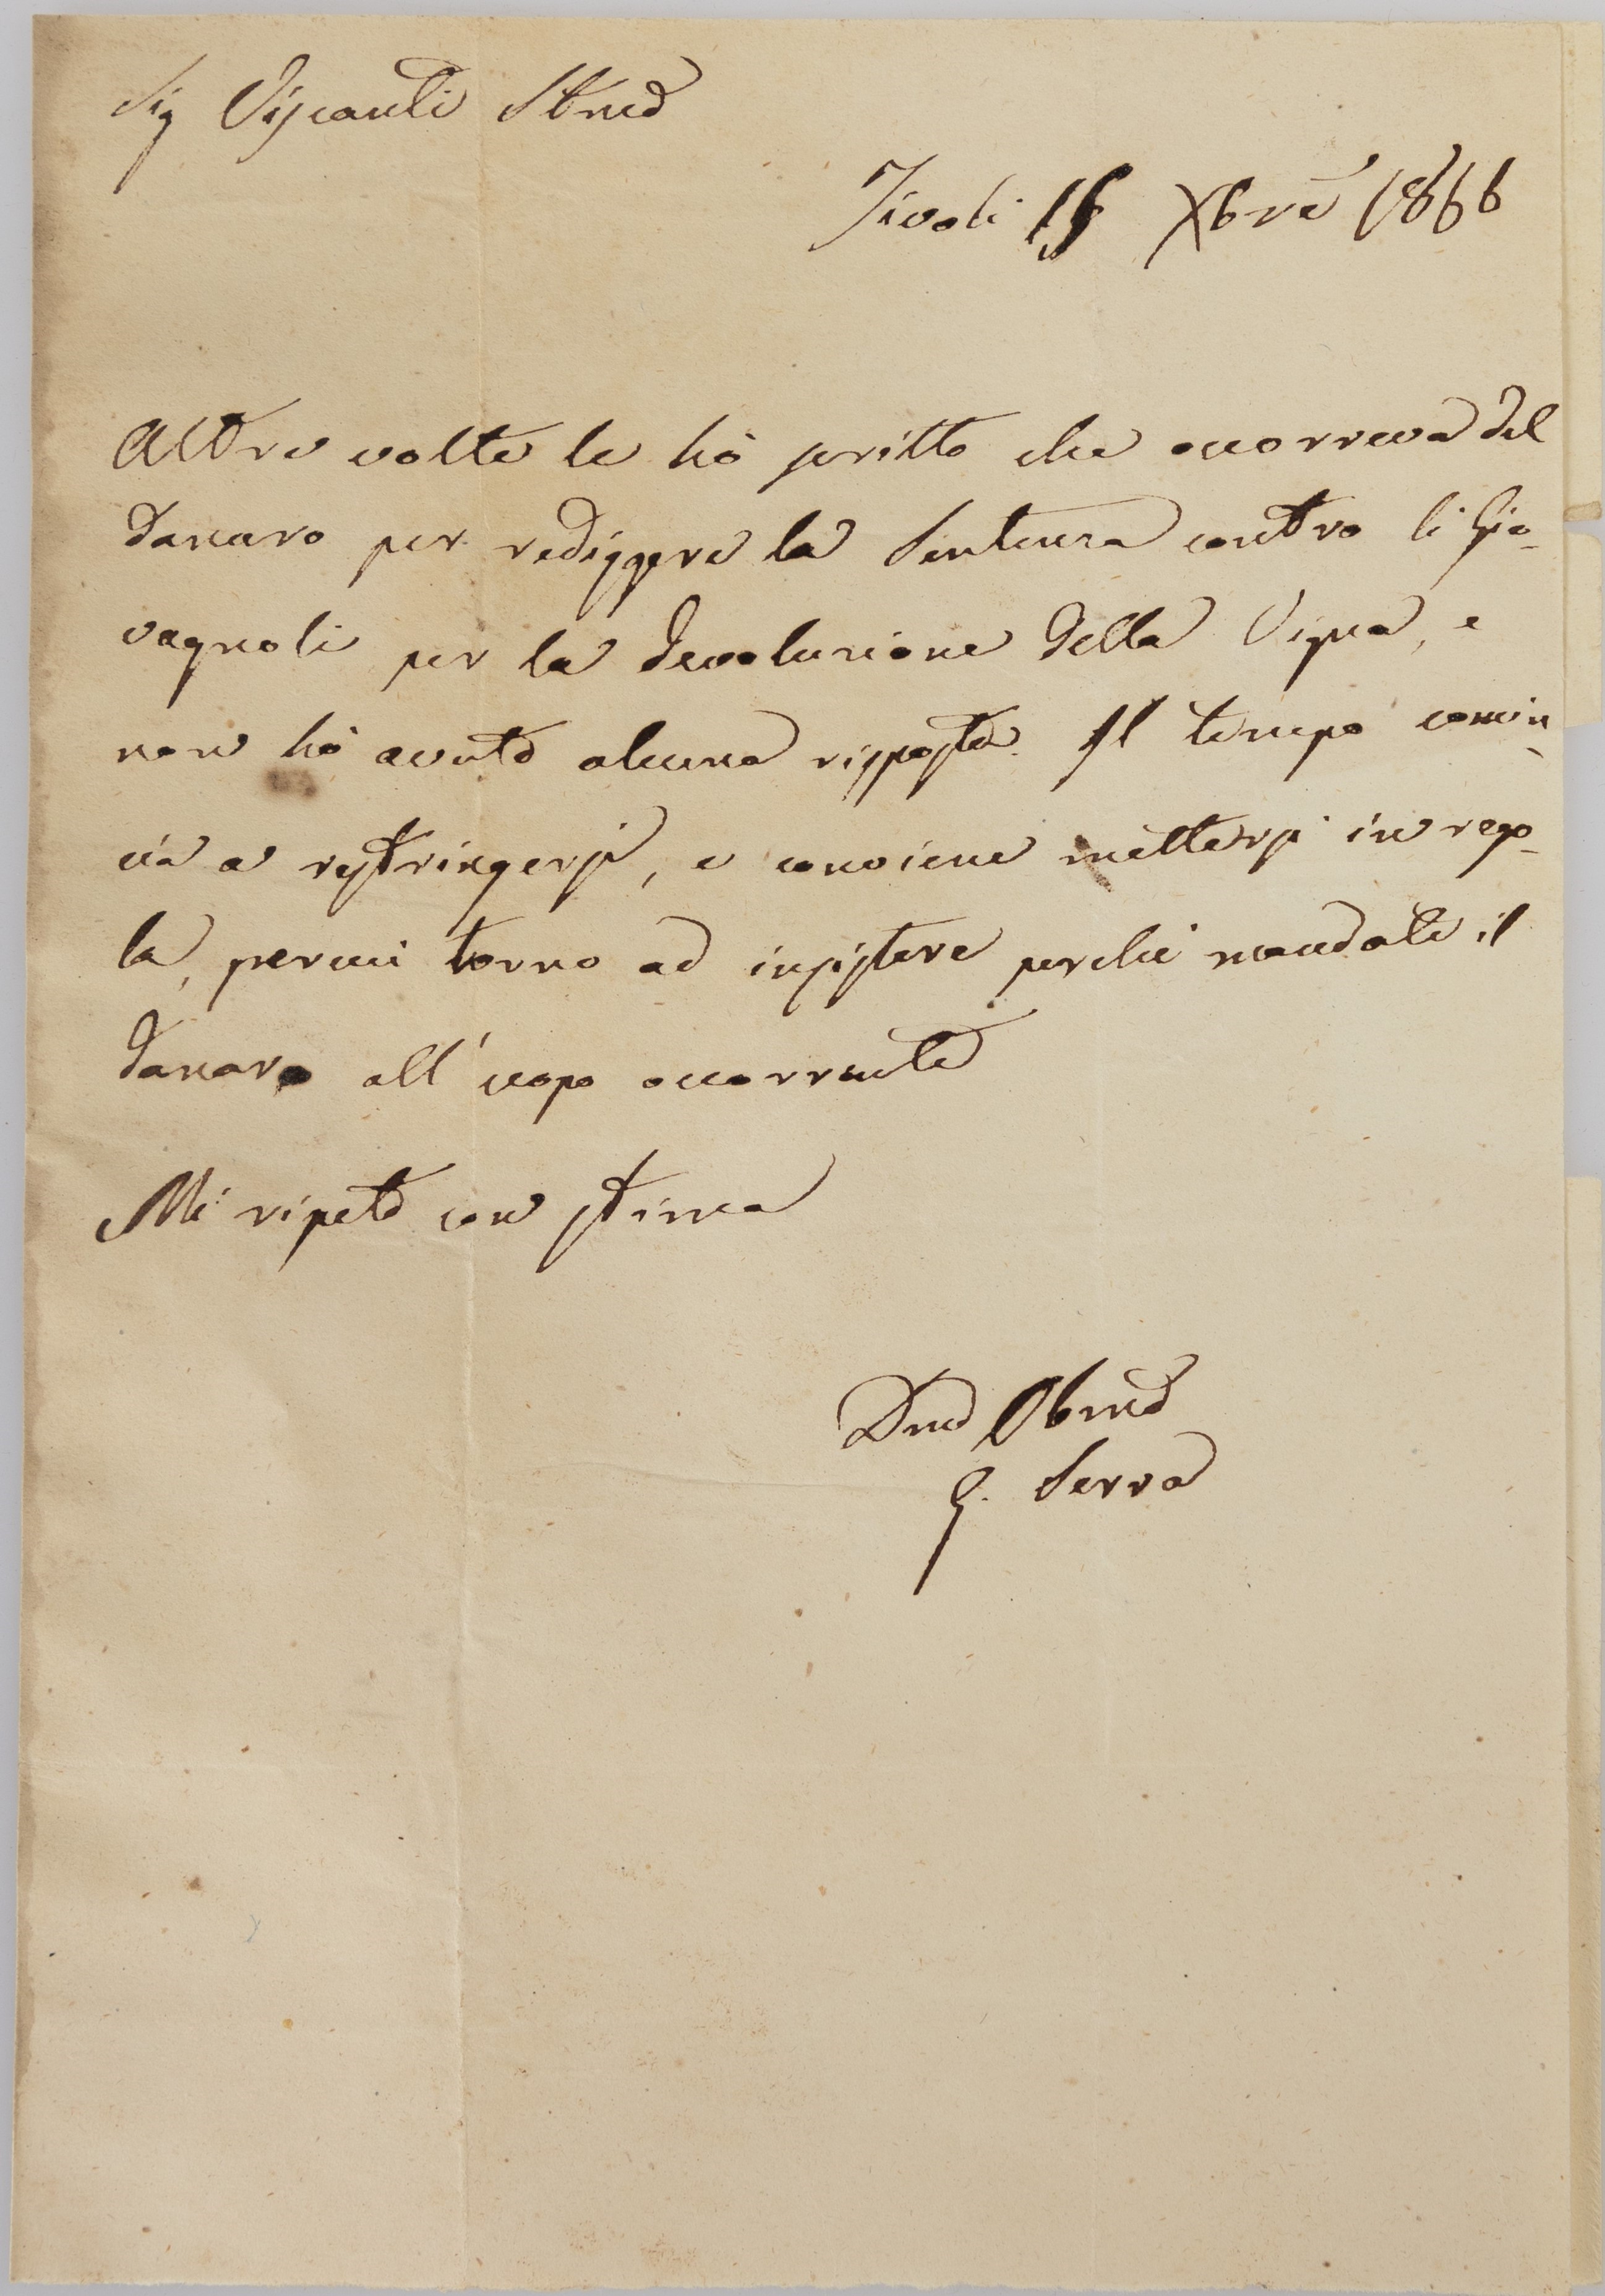 Sig Visconti Stmo
Tivoli 15 Xbre 1866
Altre volte le hò scritto che occorreva del
danaro per rediggere la Sentenza contro li Gio-
vagnoli per la devoluzione della Vigna, e
non hò avuto alcuna risposta. Il tempo comin-
cia a restringersi, e conviene mettersi in rego-
la, percui torno ad insistere perche mandate il
danaro all'uopo occorrente
Mi ripeto con stima
Dmo Obmo
G. Serra